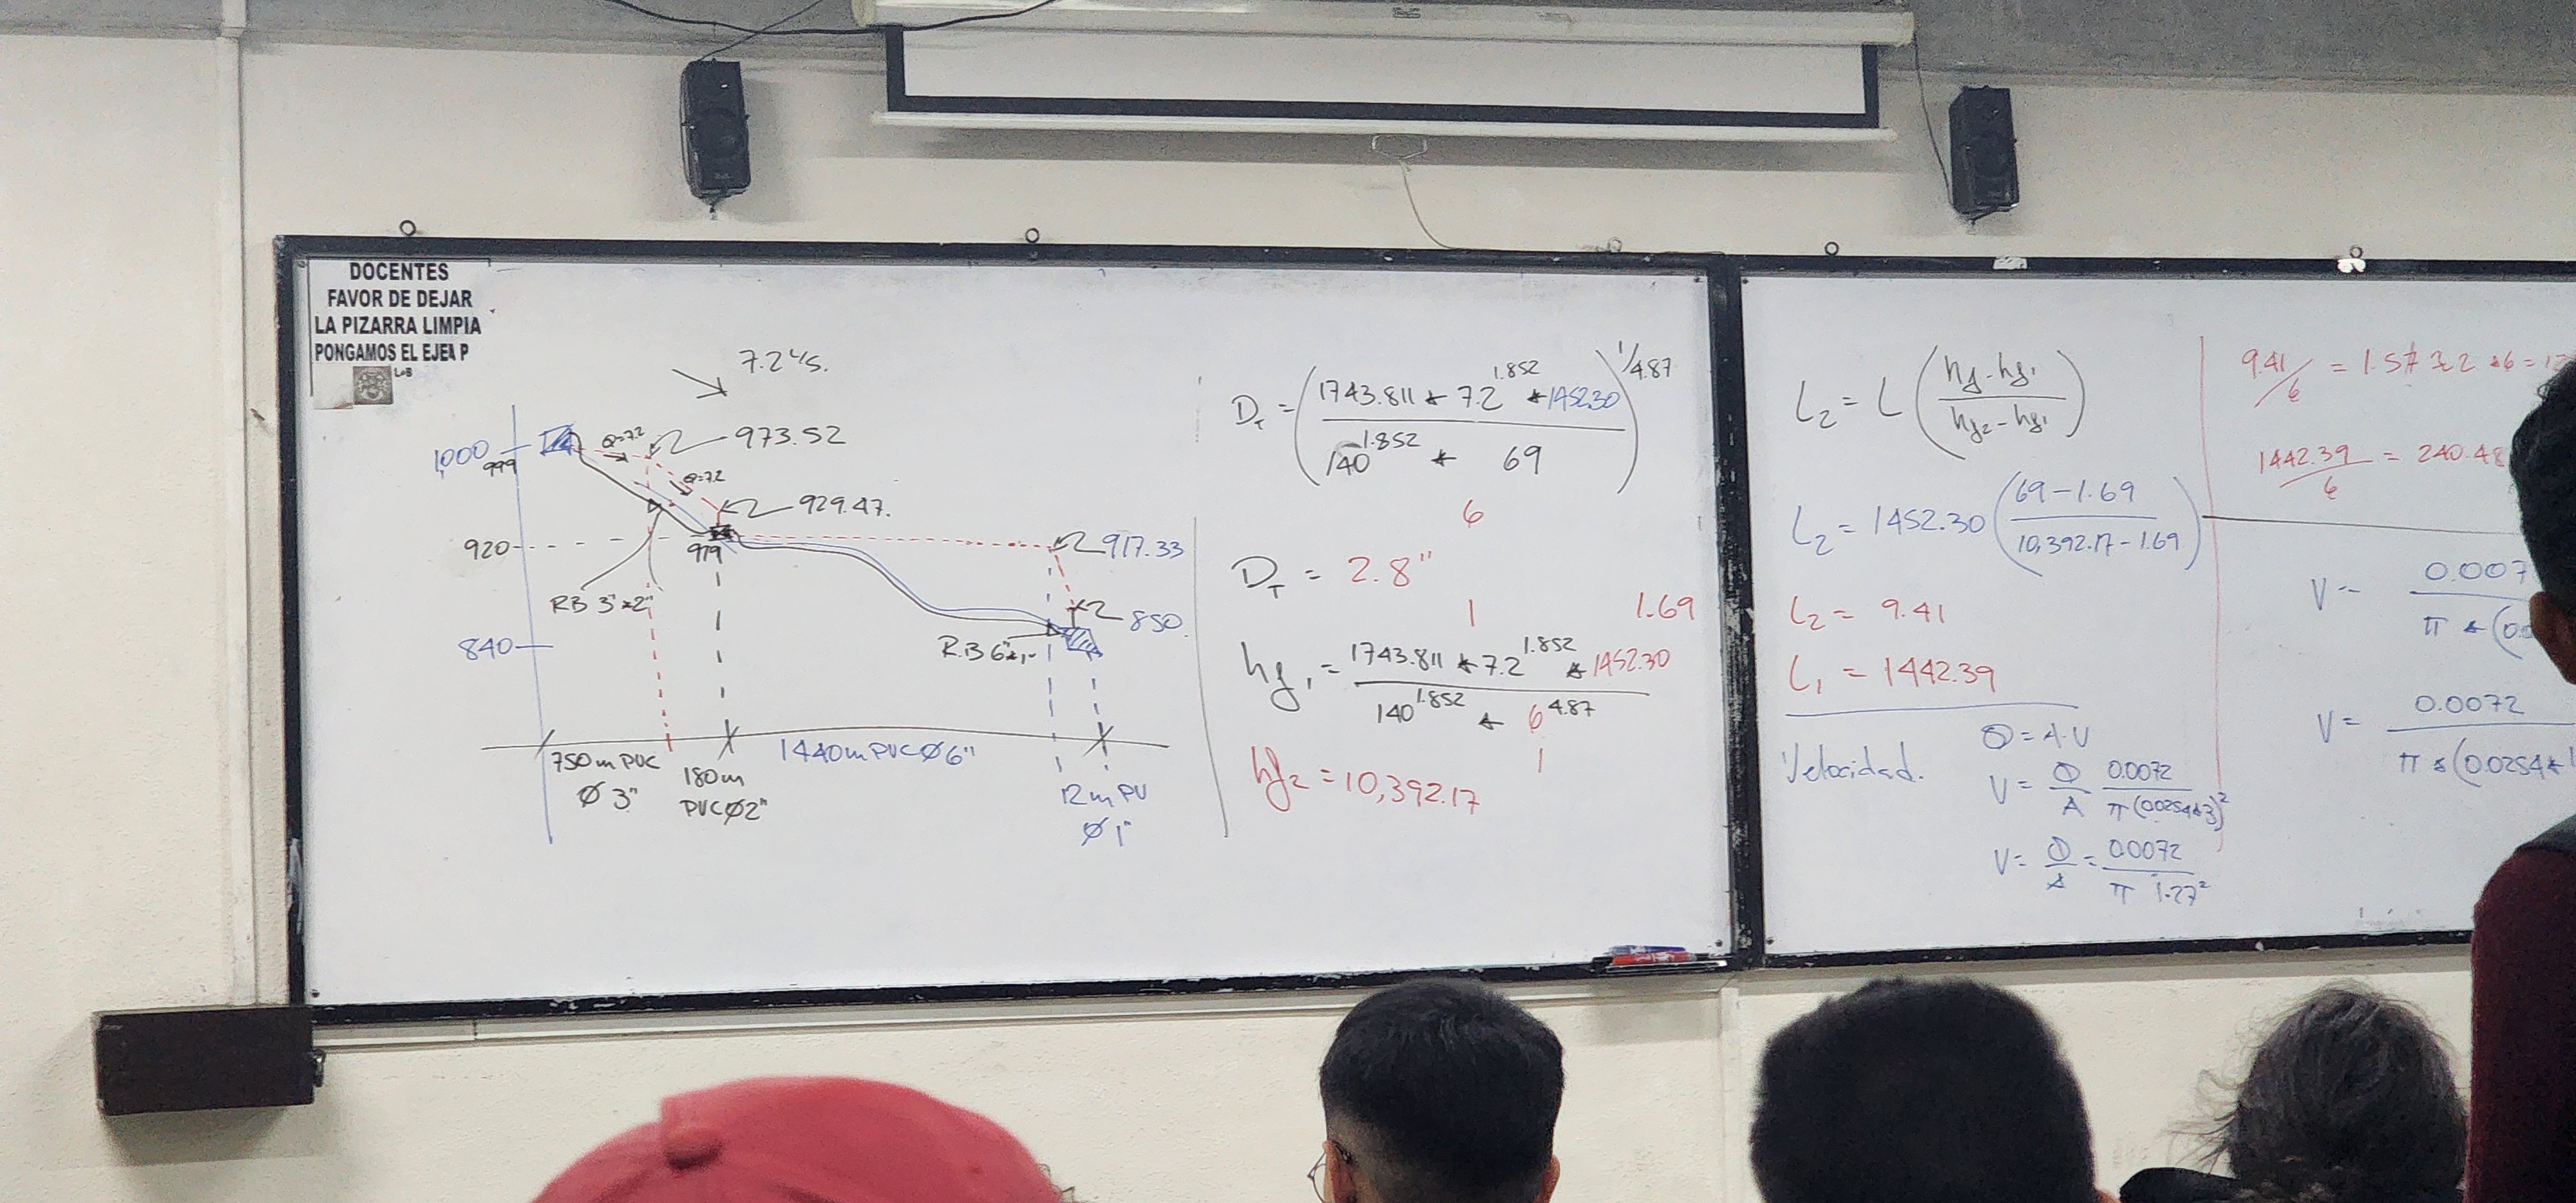 DOCENTES
FAVOR DE DEJAR
LA PIZARRA LIMPIA
PONGAMOS EL EJEM P
7.2 l/s.
1000
999
Q=7.2
973.52
Q=7.2
929.47.
920
919
917.33
RB 3"x2"
850.
840
R.B 6"x1"
750m PVC
Ø 3"
180m
PVCØ2"
1440m PVC Ø 6"
12m PV
Ø 1"
D_T = (1743.811 * 7.2^1.852 * 1452.30 / 140^1.852 * 69)^1/4.87
6
D_T = 2.8"
1
1.69
hf_1 = 1743.811 * 7.2^1.852 * 1452.30 / 140^1.852 * 6^4.87
1
hf_2 = 10,392.17
L_2 = L (hf - hf_1 / hf_2 - hf_1)
L_2 = 1452.30 (69 - 1.69 / 10,392.17 - 1.69)
L_2 = 9.41
L_1 = 1442.39
Velocidad.
Q = A.V
V = Q/A 0.0072 / π(0.0254*3)^2
V = Q/A = 0.0072 / π 1.27^2
9.41/6 = 1.57
1442.39/6 = 240.48
V = 0.007
V = 0.0072
π * (0.0254*1